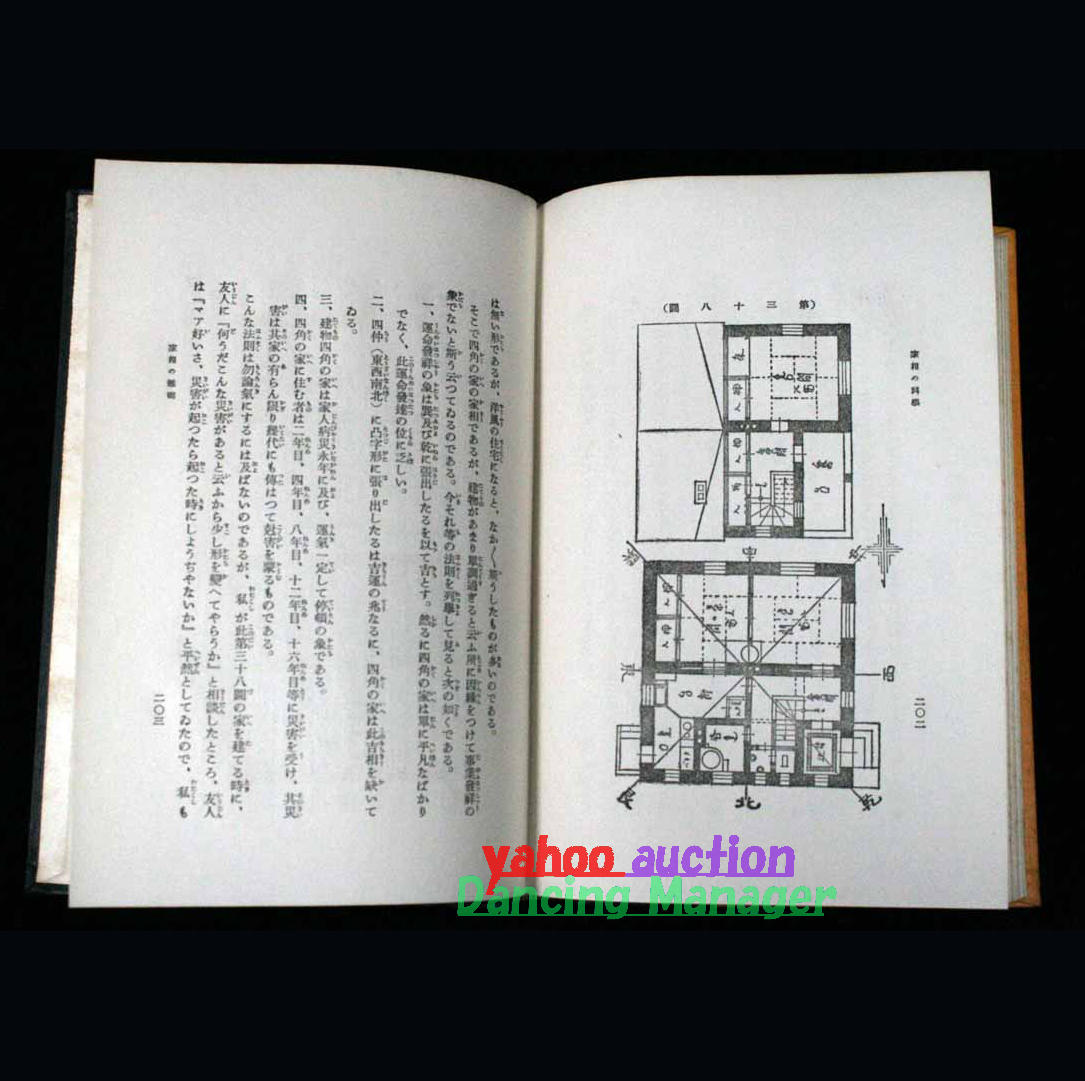 家相の科學
(第三十八圖)
二〇二
西
北
乾
艮
は無い形であるが、洋風の住宅になると、なか〱斯うしたものが多いのである。
そこで四角の家の家相であるが、建物があまり單調過ぎると云ふ所に因縁をつけて事業發祥の
象でないと斯う云つてゐるのである。今それ等の法則を列擧して見ると次の如くである。
一、運命發祥の象は巽及び乾に張出したるを以て吉とす。然るに四角の家は單に平凡なばかり
でなく、此運命發達の位に乏しい。
二、四仲(東西南北)に凸字形に張り出したるは吉運の兆なるに、四角の家は此吉相を缺いて
ゐる。
三、建物四角の家は家人病災永年に及び、運氣一定して停頓の象である。
四、四角の家に住む者は二年目、四年目、八年目、十二年目、十六年目等に災害を受け、其災
害は其家の有らん限り幾代にも傳はつて尅害を蒙るものである。
こんな法則は勿論氣にするには及ばないのであるが、私が此第三十八圖の家を建てる時に、
友人に『何うだこんな災害があると云ふから少し形を變へてやらうか』と相談したところ、友人
は『マア好いさ、災害が起つたら起つた時にしようぢやないか』と平然としてゐたので、私も
二〇三
yahoo auction
Dancing Manager